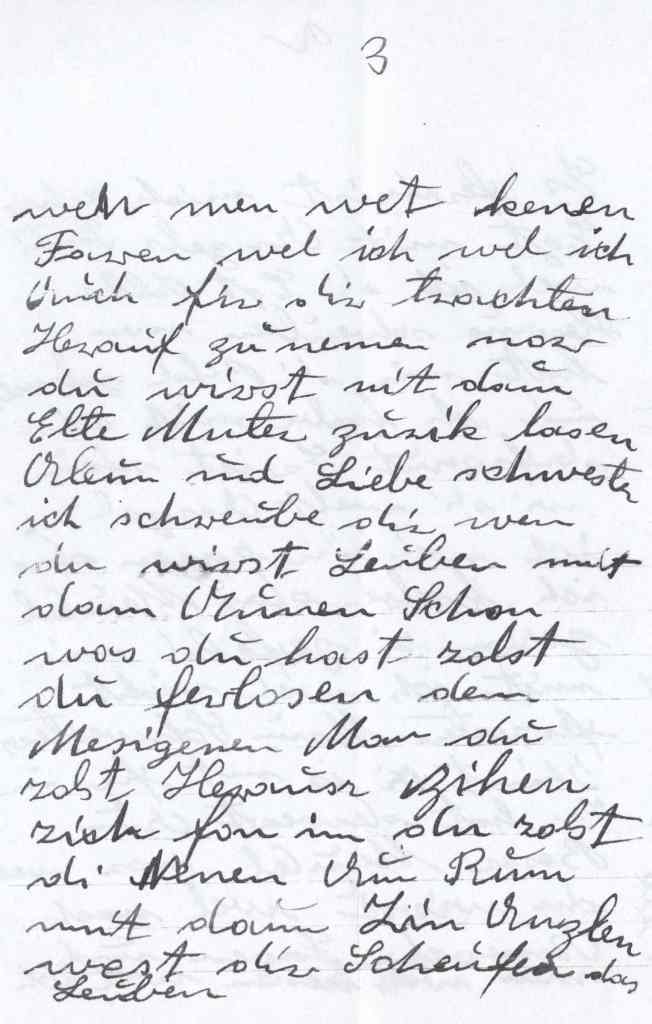 3
wen men wet kenen
Faren wel ich wel ich
Ouich fir dir trachten
Herauf zu nemen nor
du wirst nit dain
Elte Muter zurik lasen
Olein und Liebe schwester
ich schreube dir wen
du wirst Leuben mit
dam Ounen Schon
was du hast zolst
du ferlosen dem
Mesigenen Man du
zolst Herausz zihen
zich fon im du zolst
di Nenen Oun Rum
mit dain Zin Onzlen
west dir Scheufen das
Leuben